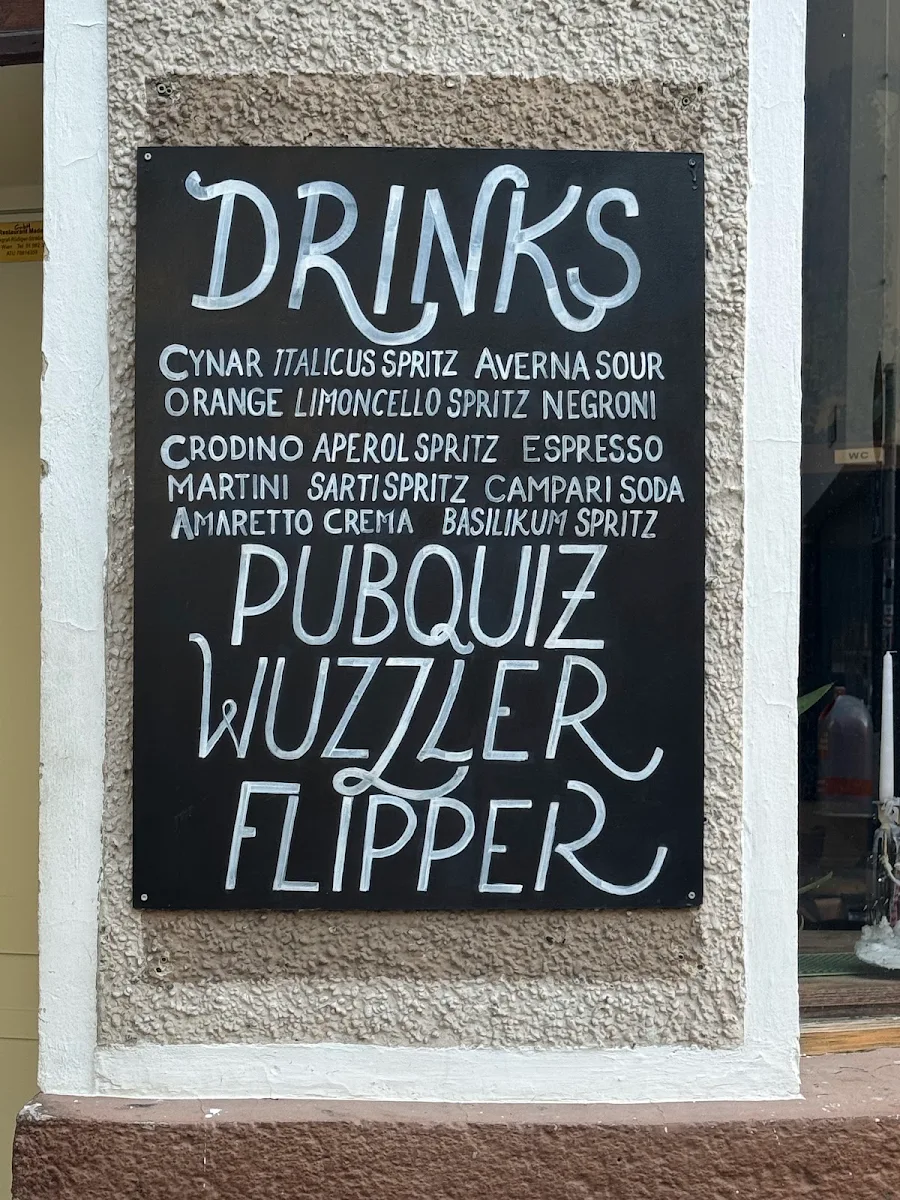 DRINKS
CYNAR ITALICUS SPRITZ AVERNA SOUR
ORANGE LIMONCELLO SPRITZ NEGRONI
CRODINO APEROL SPRITZ ESPRESSO
MARTINI SARTI SPRITZ CAMPARI SODA
AMARETTO CREMA BASILIKUM SPRITZ
PUBQUIZ
WUZZLER
FLIPPER
WC